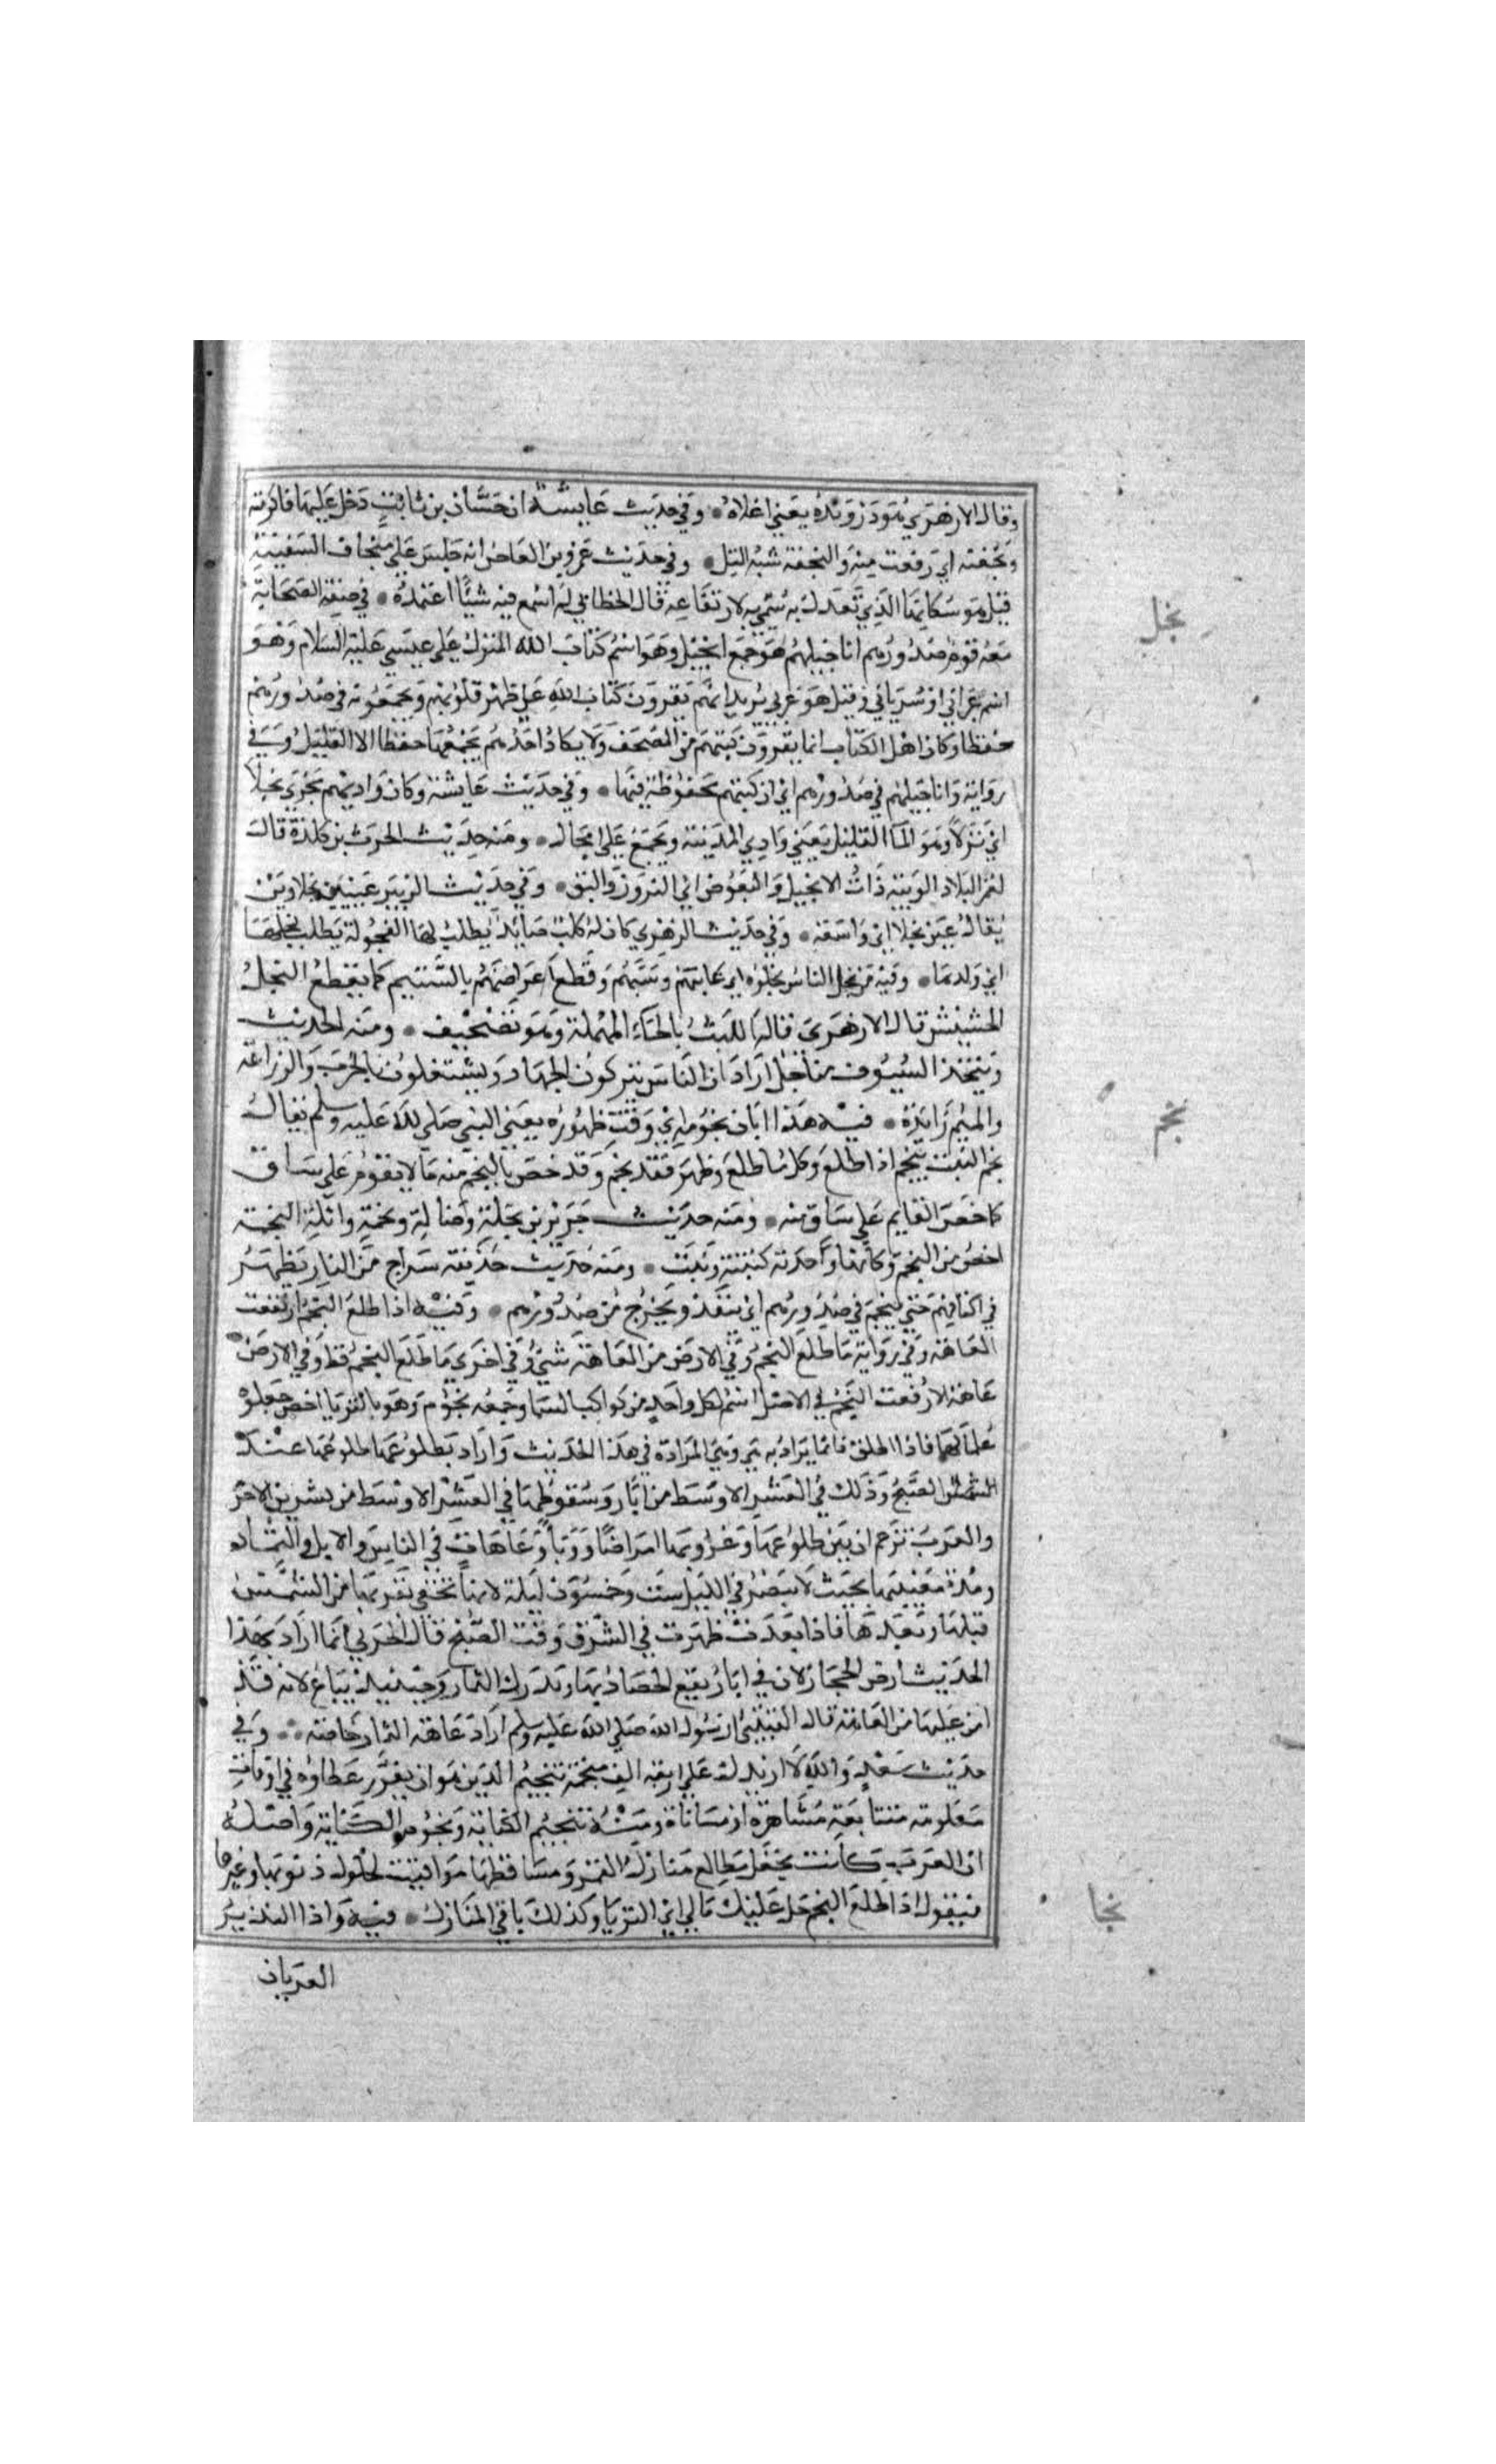 وقال الازهري هو دروَنده يعني اعلاه • وفي حديث عايشة ان حسَّان بن ثابت دخل عليها فاكرمته
ونجفته اي رفعت منه والنجفة شبه التل • وفي حديث عمرو بن العاص انه جلس على منجاف السفينة
قيل هو سكانها الذي تعدل به سمي به لارتفاعه قال الخطابي لم اسمع فيه شيئا اعتمده • في صفة الصحابة
معه قوم صدورهم اناجيلهم هو جمع انجيل وهو اسم كتاب الله المنزل على عيسى عليه السلام وهو
اسم عبراني او سرياني وقيل هو عربي يريد انهم يقرون كتاب الله عن ظهر قلوبهم ويجمعونه في صدورهم
حفظا وكان اهل الكتاب انما يقرون كتبهم من المصحف ولا يكاد احدهم يجمعها حفظا الا القليل وفي
رواية واناجيلهم في صدورهم اي ان كتبهم محفوظة فيها • وفي حديث عايشة وكان واديهم يجري نجلا
اي نزلا وهو الماء القليل يعني وادي المدينة ويجمع على انجال • ومنه حديث الحرث بن كلدة قال
لعمر البلاد الوبية ذات الانجيل والبعوض اي النزوز والبق • وفي حديث الزبير عينين نجلاوين
يقال عين نجلا اي واسعة • وفي حديث الزهري كان له كلب صايد يطلب لها الفحولة يطلب نجلها
اي ولدها • وفيه من نجل الناس نجلوه اي عابهم وسبهم وقطع اعراضهم بالشتيم كما يقطع النجل
الحشيش قال الازهري قاله الليث بالحاء المهملة وهو تصحيف • ومنه الحديث
وتتخذ السيوف مناجل اراد ان الناس يتركون الجهاد ويشتغلون بالحرث والزراعة
والميم زايدة • فيه هذا ابان نجومه اي وقت ظهوره يعني النبي صلي الله عليه وسلم يقال
نجم النبت ينجم اذا طلع وكل ما طلع وظهر فقد نجم وقد خص بالنجم منه ما لا يقوم على ساق
كما خص القايم على ساق منه • ومنه حديث جرير بين نخلة وضالة ونجمة واثلة النجمة
اخص من النجم وكانها واحدته كنبتة ونبت • ومنه حديث حذيفة سراج من النار يظهر
في اكتافهم حتى ينجم في صدورهم اي ينفذ ويخرج من صدورهم • وفيه اذا طلع النجم ارتفعت
العاهة وفي رواية ما طلع النجم وفي الارض من العاهة شي وفي اخري ما طلع النجم قط وفي الارض
عاهة الا رفعت النجم في الاصل اسم لكل واحد من كواكب السما وجمعه نجوم وهو بالثريا اخص جعلوه
علما لها فاذا اطلق فانما يراد به هي وهي المرادة في هذا الحديث واراد بطلوعها طلوعها عند
الصبح وذلك في العشر الاوسط من ايار وسقوطها في العشر الاوسط من تشرين الاخر
والعرب تزعم ان بين طلوعها وغروبها امراضا ووبا وعاهات في الناس والابل والثمار
ومدة مغيبها بحيث لا تبصر في الليل ست وخمسون ليلة لانها تخفى بقربها من الشمس
قبلها وبعدها فاذا بعدت ظهرت في الشرق وقت الصبح قال الحربي انما اراد بهذا
الحديث ارض الحجاز لان في ايار يقع الحصاد بها وتدرك الثمار وحينئذ تباع لانه قد
امن عليها من العاهة قال القتيبي ان رسول الله صلي الله عليه وسلم اراد عاهة الثمار خاصة • وفي
حديث سعد والله لا ازيدك على اربعة الاف منجمة تنجيم الدين هو ان يقرر عطاوه في اوقات
معلومة متتابعة مشاهرة او مساناة ومنه تنجيم الكتابة ونجوم الكتابة واصله
ان العرب كانت تجعل مطالع منازل القمر ومساقطها مواقيت لحلول ديونها وغيرها
فيقول اذا طلع النجم حل عليك مالي اي الثريا وكذلك باقي المنازل • فيه واذا النذير
العريان
نجل
نجم
نجا